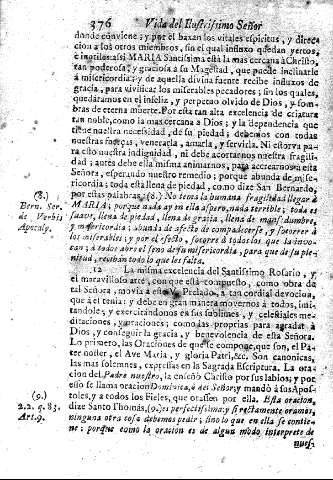 376 Vida del Ilustrissimo Señor
donde conviene; y por el baxan los vitales espiritus, y direc-
cion a los otros miembros, sin el qual influxo quedan yertos,
è inutiles: assi MARIA Santissima està la mas cercana à Christo,
tan poderosa; y graciosa à su Magestad, que puede inclinarle
à misericordia; y de aquella divina fuente recibe influxos de
gracia, para vivificar los miserables pecadores; sin los quales,
quedáramos en el infeliz, y perpetuo olvido de Dios, y som-
bras de eterna muerte. Por esta tan alta excelencia de criatura
tan noble, como la mas cercana à Dios; y la dependencia que
tiene nuestra necessidad, de su piedad; debemos con todas
nuestras fuerças, venerarla, amarla, y servirla. Ni estorva pa-
ra esto nuestra indignidad, ni debe acortarnos nuestra fragili-
dad; antes debe assi misma animarnos; para acercarnos à esta
Señora, esperando nuestro remedio; porque abunda de mise-
ricordia; toda està llena de piedad, como dize San Bernardo,
(8.) por estas palabras, (8.) No tema la humana fragilidad llegar à
Bern. Ser. MARIA; porque nada ay en ella asustero, nada terrible; toda es
de Verbis suave, llena de piedad, llena de gracia, llena de mansedumbre,
Apocaly. y misericordia; abunda de afecto de compadecerse, y socorrer à
los miserables; y por el afecto, socorre à todos los que la invo-
can; à todos abre el seno de su misericordia, para que de su ple-
nitud, reciban todo lo que les falta.
12 La misma excelencia del Santissimo Rosario, y
el maravilloso arte, con que està compuesto, como obra de
tal Señora, movia à este V. Prelado, à tan cordial devocion,
que à el tenia: y debe en gran manera movernos à todos, imi-
tandole; y exercitandonos en sus sublimes, y celestiales me-
ditaciones, y oraciones; como las proprias para agradar à
Dios, y conseguir la gracia, y benevolencia de esta Señora.
Lo primero, las Oraciones de que se compone, que son, el Pa-
ter noster, el Ave Maria, y gloria Patri, &c. Son canonicas,
las mas solemnes, expressas en la Sagrada Escriptura. La ora-
cion del Padre nuestro, la enseñò Christo por sus labios; y por
esso se llama oracion Dominica, è del Señor; y mandò à sus Apos-
(9.) toles, y à todos los Fieles, que orassen por ella. Esta oracion,
2.2. q. 83. dize Santo Thomàs, (9.) es perfectissima: y si rectamente oramos,
Art. 9. ninguna otra cosa debemos pedir; sino lo que en ella se contie-
ne: porque como la oracion es de algun modo interprete de
nues-